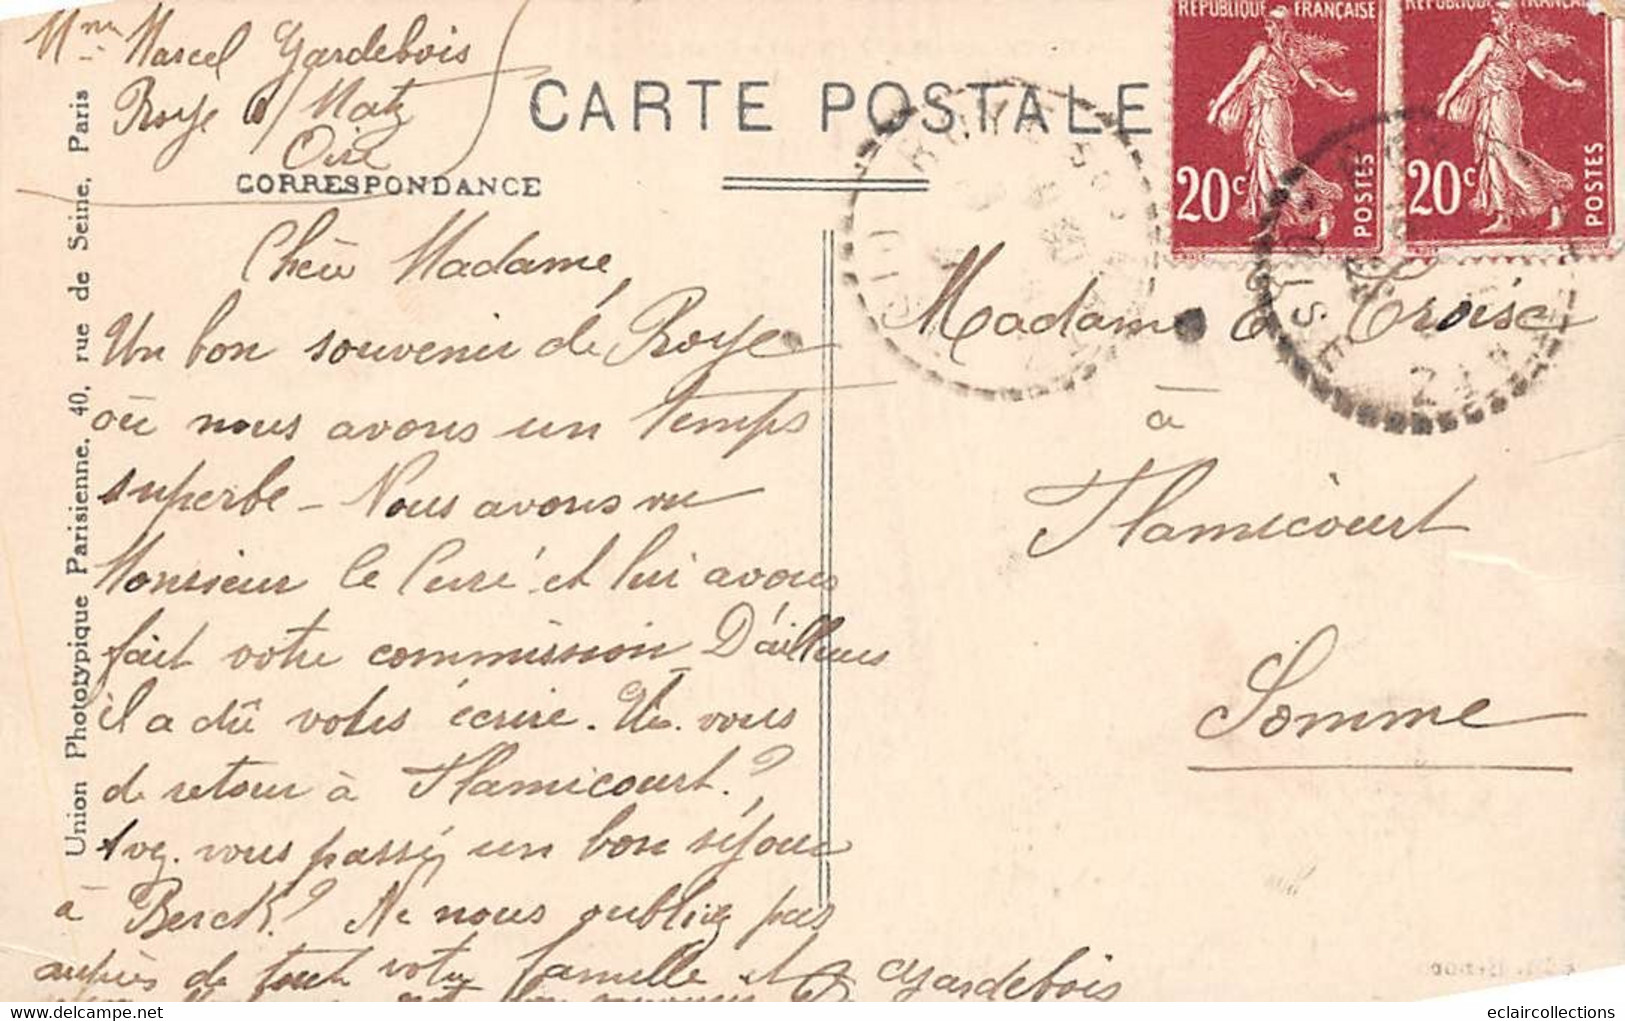 Mme Marcel Gardebois
Roye s/ Matz
Oise
CARTE POSTALE
CORRESPONDANCE
RÉPUBLIQUE FRANÇAISE
20c POSTES
RÉPUBLIQUE FRANÇAISE
20c POSTES
Union Phototypique Parisienne, 40, rue de Seine, Paris
Chère Madame,
Un bon souvenir de Roye
où nous avons un temps
superbe - Nous avons vu
Monsieur le Curé et lui avons
fait votre commission D'ailleurs
il a dû vous écrire. Etes. vous
de retour à Flamicourt.?
Avez. vous passé un bon séjour
à Berck? Ne nous oubliez pas
auprès de tout votre famille et
Gardebois
Madame Croise
à
Flamicourt
Somme
eclaircollections